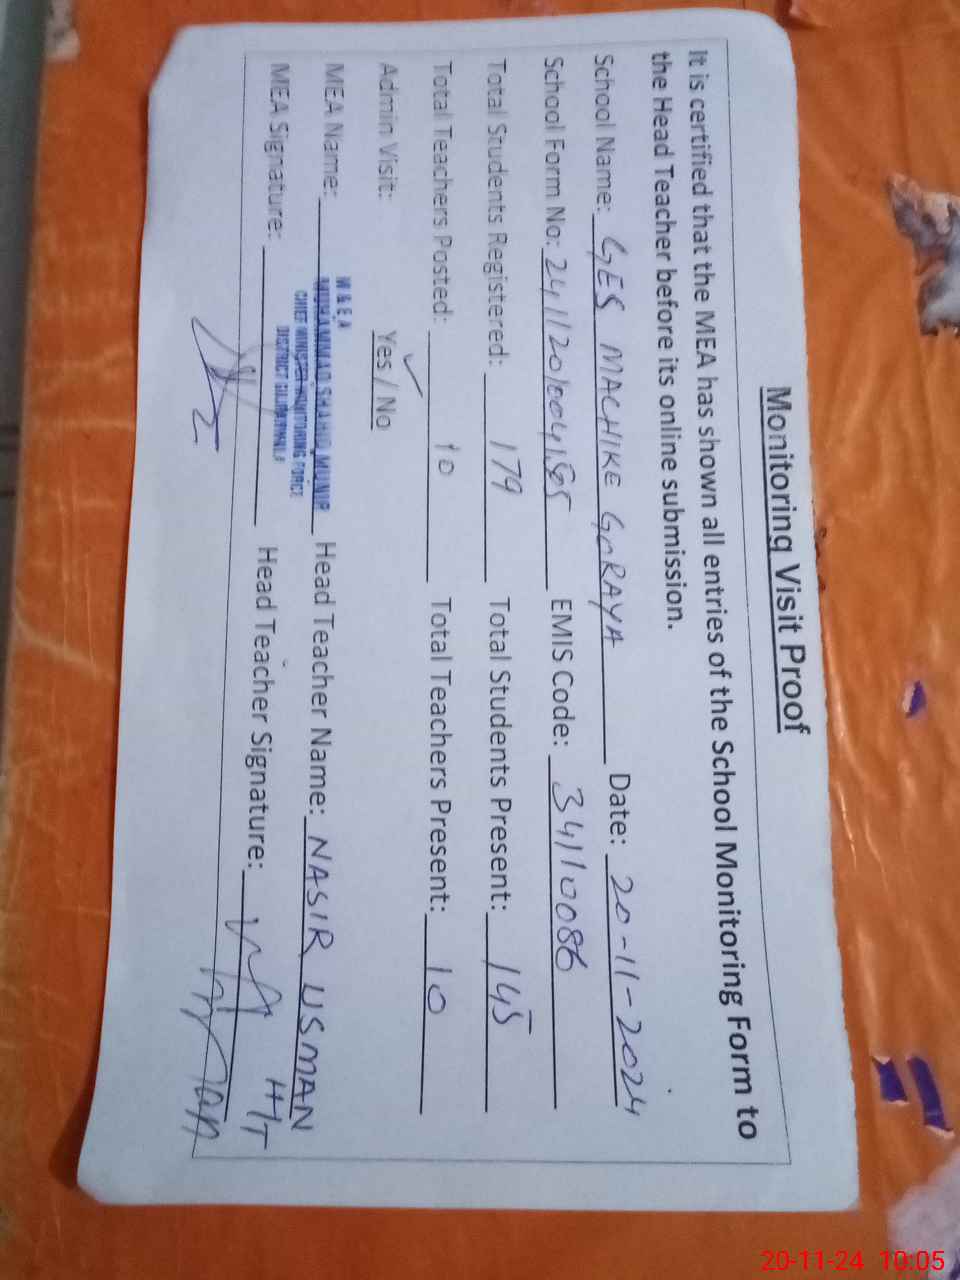 Monitoring Visit Proof
It is certified that the MEA has shown all entries of the School Monitoring Form to
the Head Teacher before its online submission.
School Name: GES MACHIKE GORAYA Date: 20-11-2024
School Form No: EMIS Code: 34110086
Total Students Registered: 179 Total Students Present: 145
Total Teachers Posted: 10 Total Teachers Present: 10
Admin Visit: Yes / No
M & E A
MEA Name: MUHAMMAD SHAHID MUNIR Head Teacher Name: NASIR USMAN
CHIEF MINISTER MONITORING FORCE
DISTRICT GUJRANWALA
MEA Signature: Head Teacher Signature: H/T
20-11-24 10:05